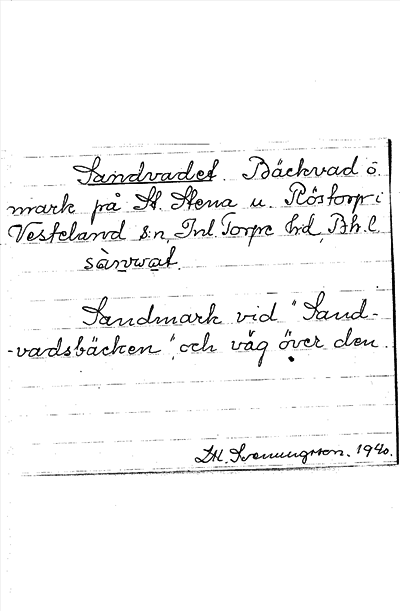 Sandvadet. Bäckvad o.
mark på St. Stena u. Röstorp i
Vesteland s:n, Inl. Torpe hd, Bh. l.
sànvat.
Sandmark vid "Sand-
-vadsbäcken", och väg över den.
1940.